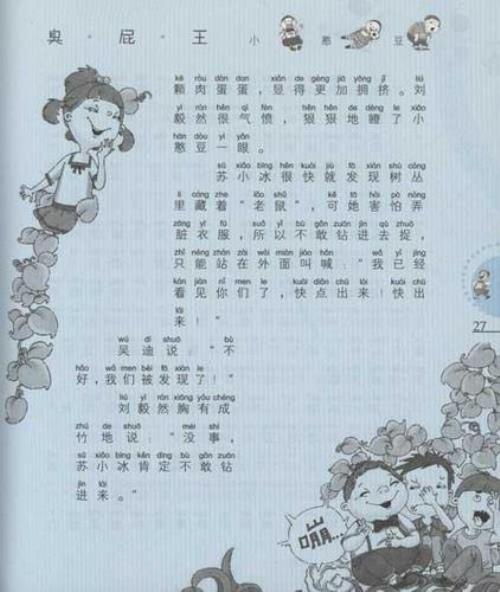 臭·屁·王 小 憨 豆
kē ròu dàn dan xiǎn de gèng jiā yōng jǐ liú
颗肉蛋蛋，显得更加拥挤。刘
yì rán hěn qì fèn hěn hěn de dèng le xiǎo
毅然很气愤，狠狠地瞪了小
hān dòu yì yǎn
憨豆一眼。
sū xiǎo bīng hěn kuài jiù fā xiàn shù cóng
苏小冰很快就发现树丛
lǐ cáng zhe lǎo shǔ kě tā hài pà nòng
里藏着“老鼠”，可她害怕弄
zāng yī fu suǒ yǐ bù gǎn zuān jìn qù zhuō
脏衣服，所以不敢钻进去捉，
zhǐ néng zhàn zài wài miàn jiào hǎn wǒ yǐ jīng
只能站在外面叫喊：“我已经
kàn jiàn nǐ men le kuài diǎn chū lái kuài chū
看见你们了，快点出来！快出
lái
来！”
27
wú dí shuō bù
吴迪说：“不
hǎo wǒ men bèi fā xiàn le
好，我们被发现了！”
liú yì rán xiōng yǒu chéng
刘毅然胸有成
zhú de shuō méi shì
竹地说：“没事，
sū xiǎo bīng kěn dìng bù gǎn zuān
苏小冰肯定不敢钻
jìn lái
进来。”
嘣…